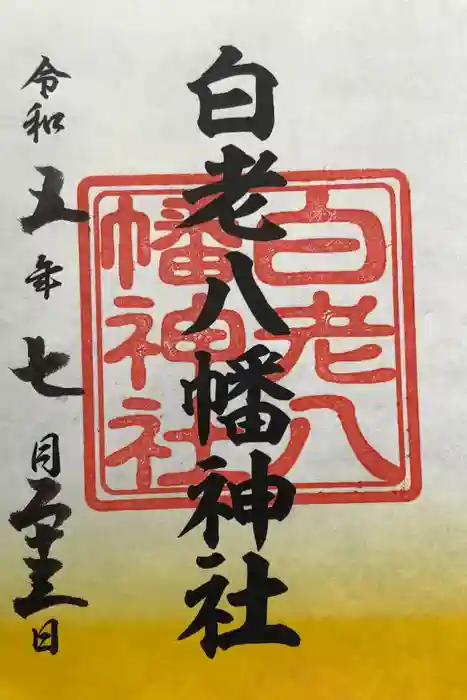 白老八幡神社
白老八
幡神社
令和五年七月 日